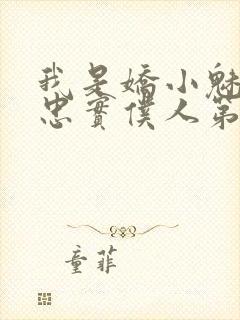 我是嬌小魅
忠實僕人第
童菲